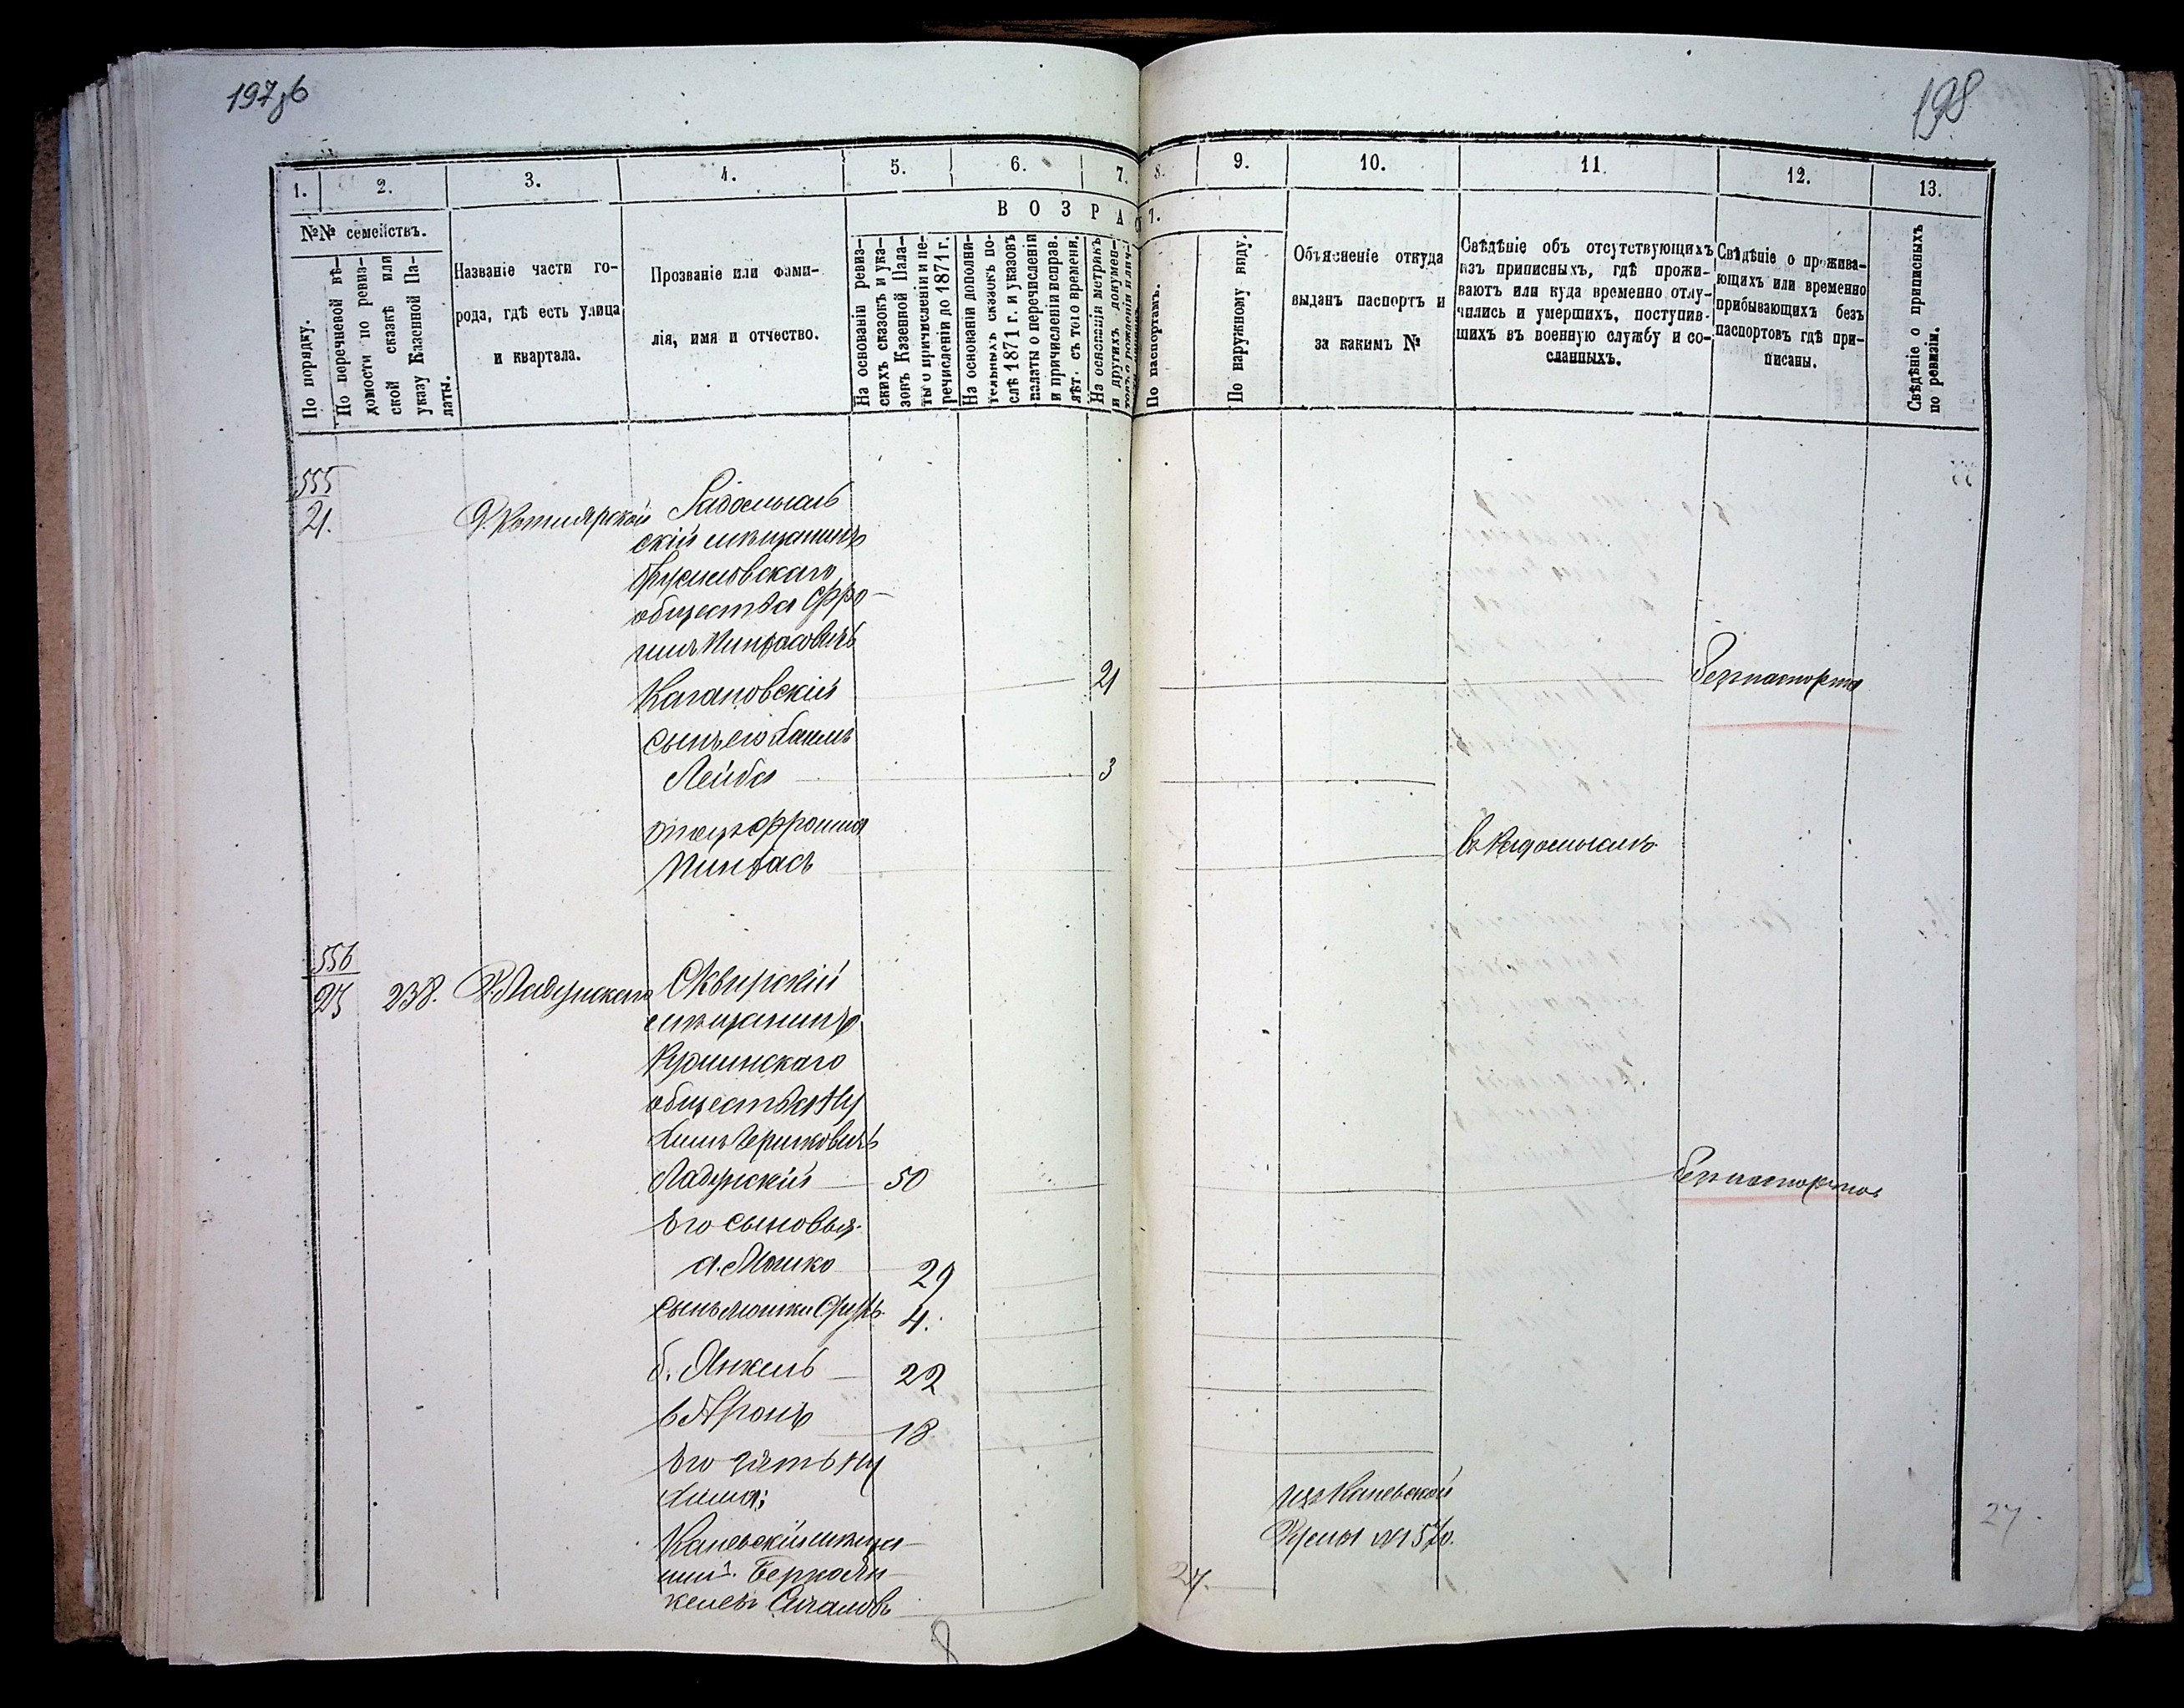 197 об
198
1.
2.
3.
4.
5.
6.
7.
8.
9.
10.
11
12.
13.
№№ семействъ.
ВОЗРА
По порядку.
По перечневой вѣ-
домости по ревиз-
ской сказкѣ или
указу Казенной Па-
латы.
Названіе части го-
рода, гдѣ есть улица
и квартала.
Прозваніе или фами-
лія, имя и отчество.
На основаніи ревиз-
скихъ сказокъ и ука-
зовъ Казенной Пала-
ты о причисленіи и пе-
речисленіи до 1871 г.
На основаніи дополни-
тельныхъ сказокъ по-
слѣ 1871 г. и указовъ
палаты о перечисленіи
и причисленіи исправ.
лѣт. съ того времени.
На основаніи метрикъ
и другихъ докумен-
По паспортамъ.
По наружному виду.
Объясненіе откуда
выданъ паспортъ и
за какимъ №
Свѣдѣніе объ отсутствующихъ
изъ приписныхъ, гдѣ прожи-
ваютъ или куда временно отлу-
чились и умершихъ, поступив-
шихъ въ военную службу и со-
сланныхъ.
Свѣдѣніе о прожива-
ющихъ или временно
прибывающихъ безъ
паспортовъ гдѣ при-
писаны.
Свѣдѣніе о приписныхъ
по ревизіи.
555
21.
Д. Котлярской
Радомысль
скій мѣщанинъ
Брусиловскаго
общества Фро-
имъ Пинхасовичъ
Кагановскій 21 безпаспорта
сынъ его
Лейба 3
отецъ Фроима
Пинхасъ
въ Радомыслѣ
556
25 238. Д. Ладунскаго
Сквирскій
мѣщанинъ
Ружинскаго
общества Ну
химъ Берковичъ
Ладунскій 50 безпаспорта
Его сыновья
а. Мошко 29
сынъ Мошки Сруль 4.
б. Янкель 22
в Аронъ 18
Его зять Ну
хима;
Каневскій мѣща-
нинъ. Берко Ян-
келевъ
27.
изъ Каневской
Думы № 570.
27.
8